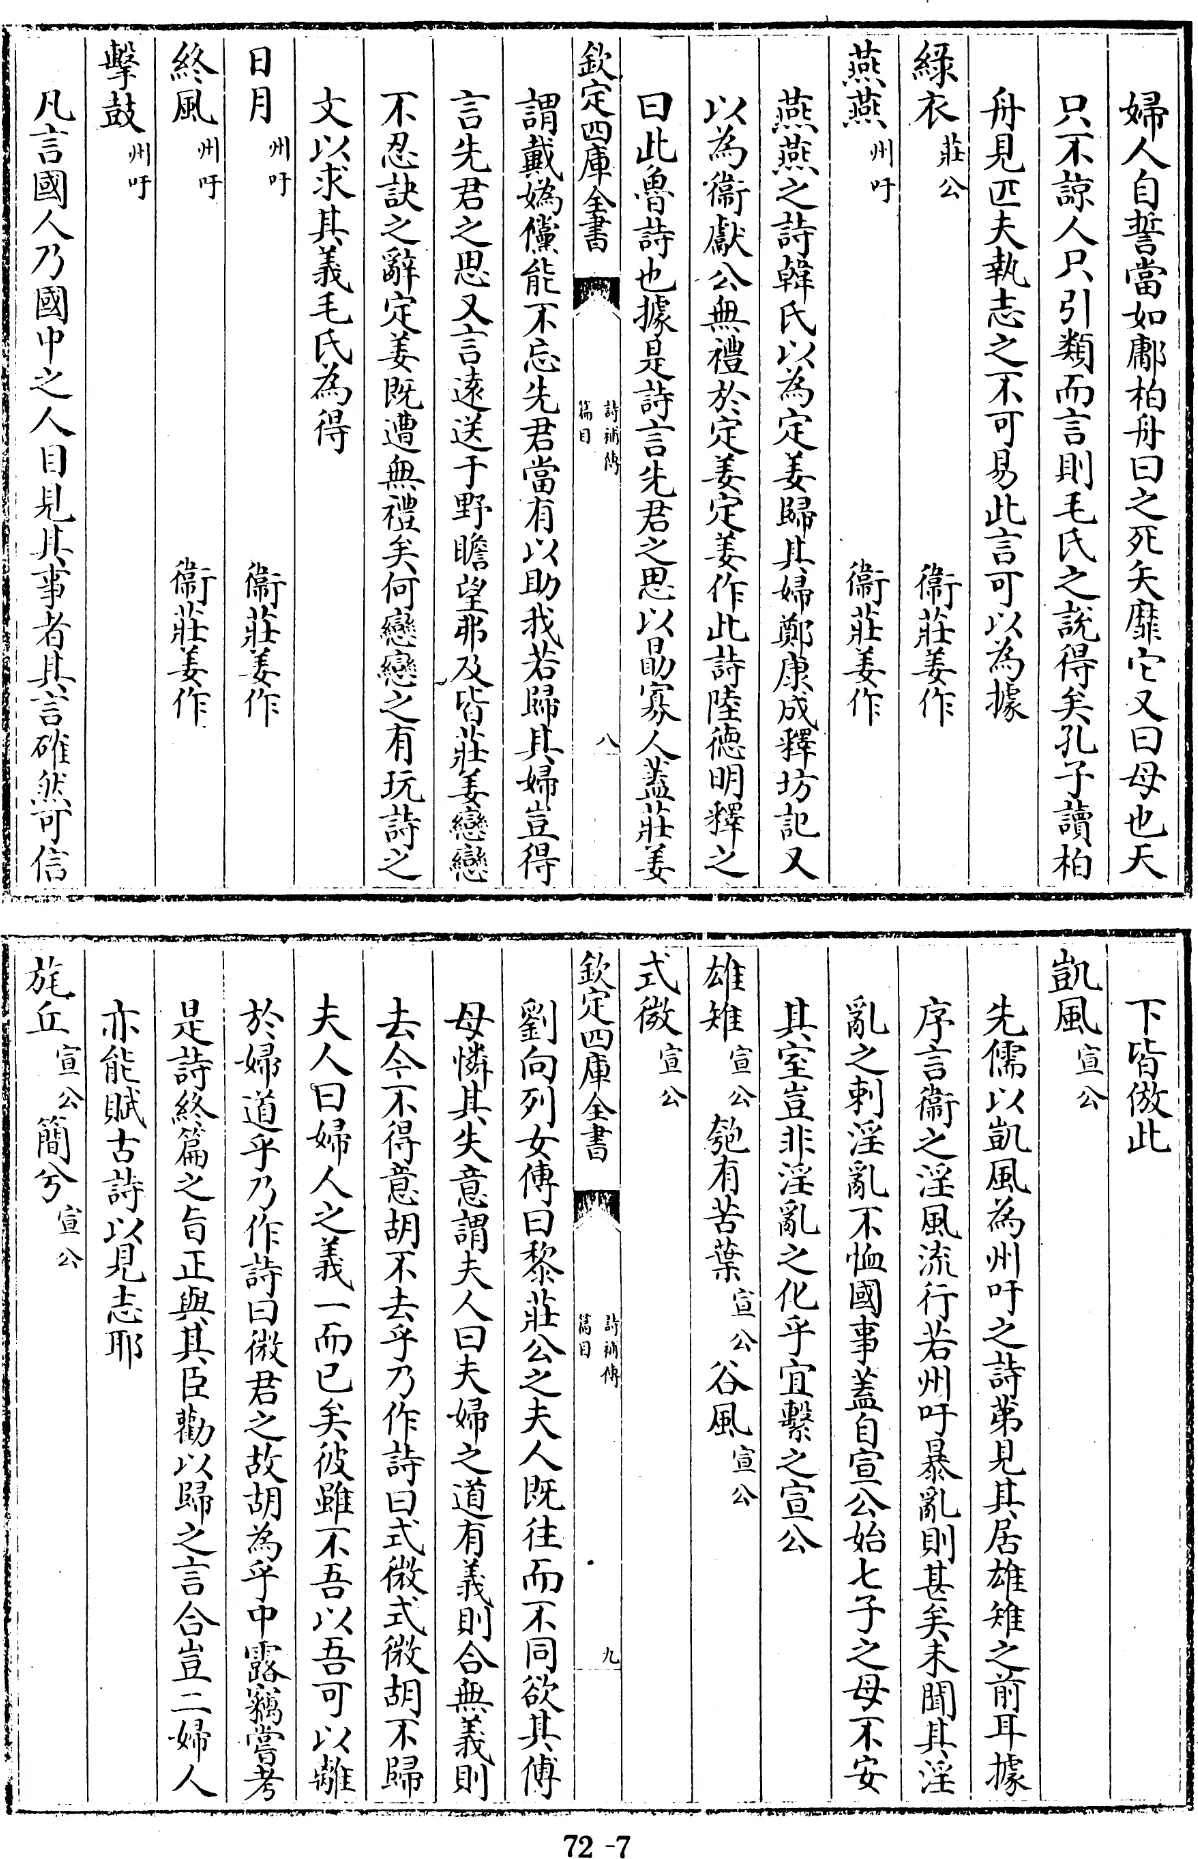 婦人自誓當如鄘柏舟曰之死矢靡它又曰母也天
只不諒人只引類而言則毛氏之說得矣孔子讀柏
舟見匹夫執志之不可易此言可以為據
綠衣 莊公 衞莊姜作
燕燕 州吁 衞莊姜作
燕燕之詩韓氏以為定姜歸其婦鄭康成釋坊記又
以為衞獻公無禮於定姜定姜作此詩陸德明釋之
曰此魯詩也據是詩言先君之思以勗寡人蓋莊姜
欽定四庫全書 詩補傳 篇目 八
謂戴媯儻能不忘先君當有以助我若歸其婦豈得
言先君之思又言遠送于野瞻望弗及皆莊姜戀戀
不忍訣之辭定姜既遭無禮矣何戀戀之有玩詩之
文以求其義毛氏為得
日月 州吁 衞莊姜作
終風 州吁 衞莊姜作
擊鼓 州吁
凡言國人乃國中之人目見其事者其言確然可信
下皆倣此
凱風 宣公
先儒以凱風為州吁之詩第見其居雄雉之前耳據
序言衞之淫風流行若州吁暴亂則甚矣未聞其淫
亂之刺淫亂不恤國事蓋自宣公始七子之母不安
其室豈非淫亂之化乎宜繫之宣公
雄雉 宣公 匏有苦葉 宣公 谷風 宣公
式微 宣公
欽定四庫全書 詩補傳 篇目 九
劉向列女傳曰黎莊公之夫人既往而不同欲其傅
母憐其失意謂夫人曰夫婦之道有義則合無義則
去今不得意胡不去乎乃作詩曰式微式微胡不歸
夫人曰婦人之義一而已矣彼雖不吾以吾可以離
於婦道乎乃作詩曰微君之故胡為乎中露竊嘗考
是詩終篇之旨正與其臣勸以歸之言合豈二婦人
亦能賦古詩以見志耶
旄丘 宣公 簡兮 宣公
72-7